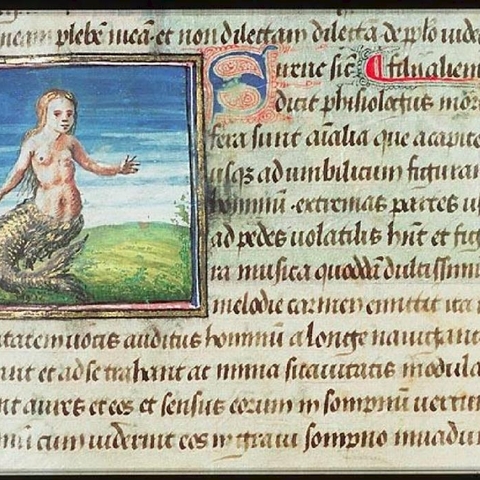 meam plebē meā et non dilectam dilectā de pplo
urene sic
dicit phisiologus
fera sunt aīalia que a capite
usq; ad umbilicum figuram
hominū extremas partes
ad pedes volatilis hn̄t et
ra musica quoddā dulcissimū
melodie carmen emittit ita
tatem vocis auditus hominū a longe navigant
unt et ad se trahant ac nimia suavitatis modula
nt aures eos et sensus eorum in sompnū
cum viderint eos in gravi sompno